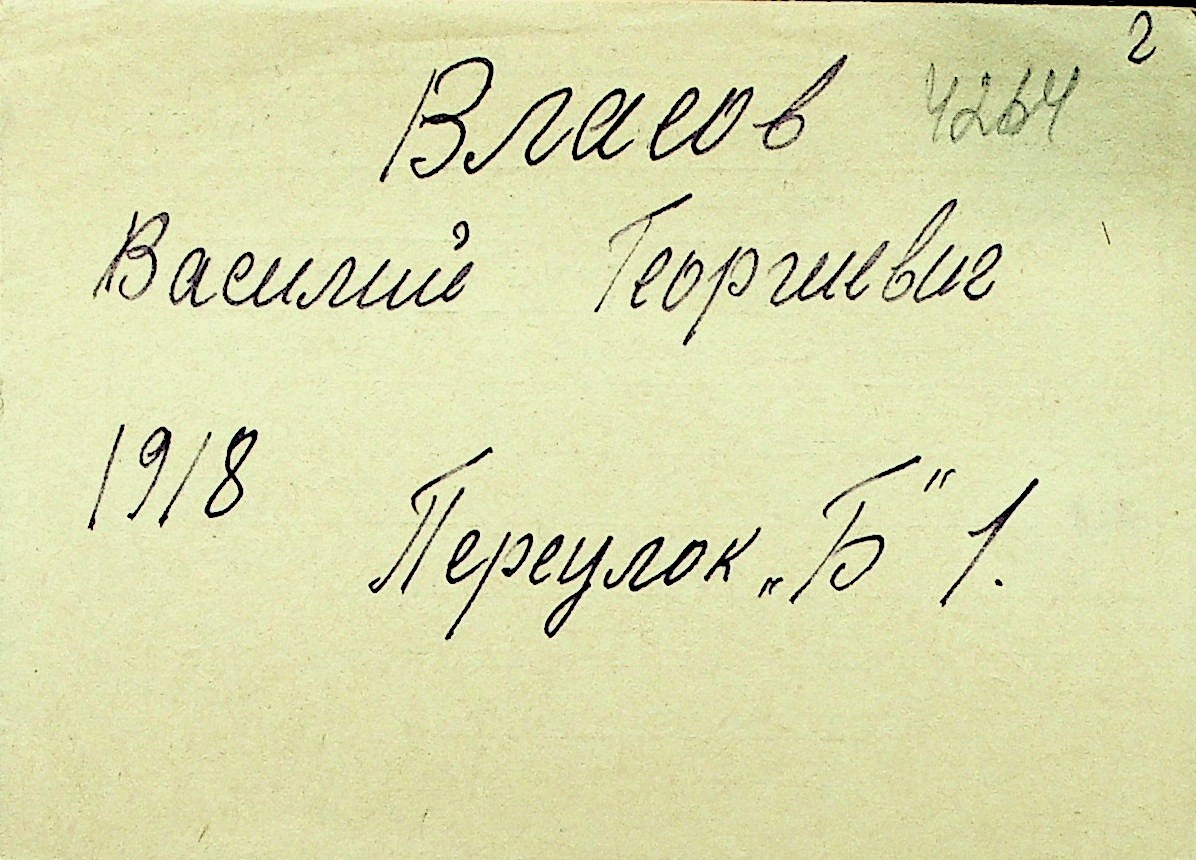 2
Власов 4264
Василий Георгиевич
1918
Переулок „Б“ 1.